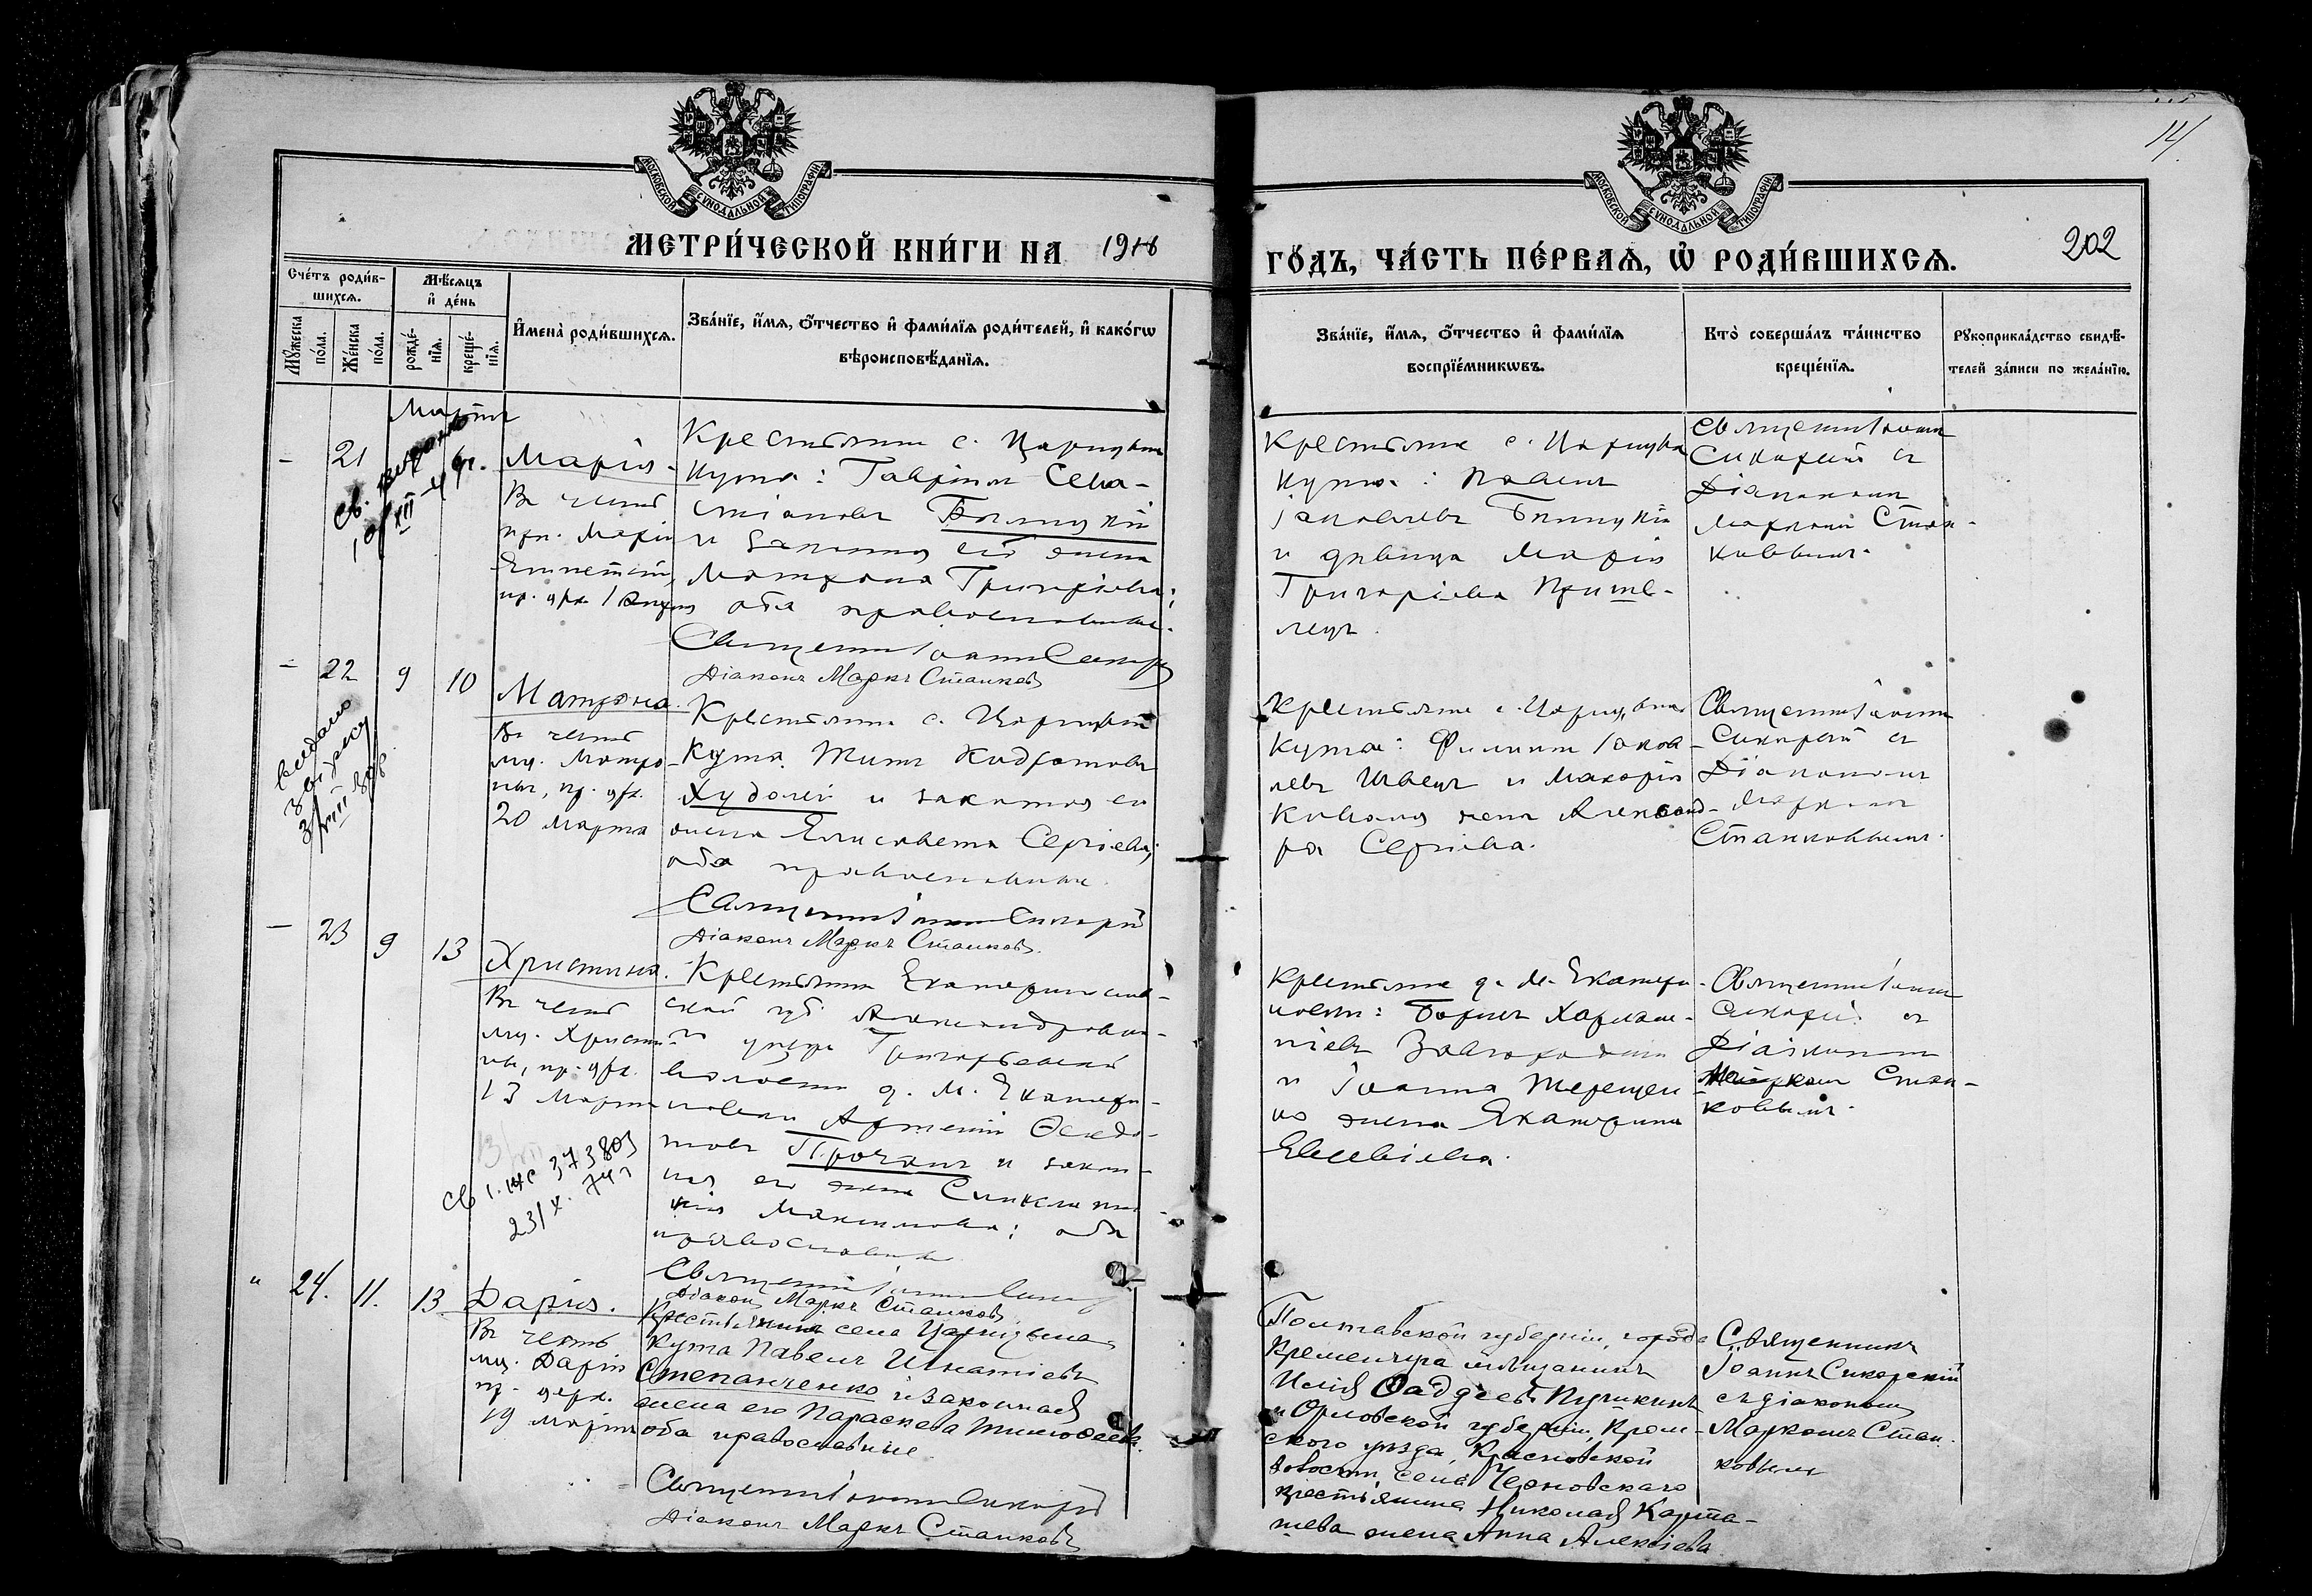 14.
МОСКОВСКОЙ СѴНОДАЛЬНОЙ ТИПОГРАФІИ
МОСКОВСКОЙ СѴНОДАЛЬНОЙ ТИПОГРАФІИ
МЕТРИ́ЧЕСКОЙ КНИ́ГИ НА 1916
ГО́ДЪ, ЧА́СТЬ ПЕ́РВАѦ, Ѡ҆ РОДИ́ВШИХСѦ.
202
Сче́тъ роди́в-
шихсѧ.
Мꙋ́жеска по́ла.
Же́нска по́ла.
Мѣ́сѧцъ
и҆ де́нь
рожде́-
нїѧ.
креще́-
нїѧ.
И҆мена̀ роди́вшихсѧ.
Зва́нїе, и҆́мѧ, ѻ҆́тчество и҆ фами́лїѧ роди́телей, и҆ како́гѡ
вѣроисповѣ́данїѧ.
Зва́нїе, и҆́мѧ, ѻ҆́тчество и҆ фами́лїѧ
воспрїе́мникѡвъ.
Кто̀ соверша́лъ та́инство
креще́нїѧ.
Рꙋкоприкла́дство свидѣ́-
телей за́писи по жела́нїю.
Мартъ
- 21
Марія.
Въ честь
прп. Маріи
Египетск,
Крестьянин с. Царицына
Кута: Гавріил Сева-
стіановъ
и законная его жена
Матрона Григоріева;
оба православные.
Священник Іоанн Сикорск
Діаконъ Маркъ Станковъ
Крестьяне с. Царицына
Кута: Павелъ
Іаковлевъ Билицкій
и дѣвица Марія
Григоріева Пришле-
лецъ.
Священник Іоанн
Сикорский съ
Діакономъ
Маркомъ Стан-
ковымъ.
- 22 9 10
Матрона.
Въ честь
мц. Матро-
ны, пр. чтк.
20 марта
выдано
Крестьянин с. Царицына
Кута Титъ Кодратовъ
Худолей и законная его
жена Елисавета Сергіева;
оба православные
Священник Іоанн Сикорский
Діаконъ Маркъ Станковъ.
Крестьяне с. Царицына
Кута: Филиппъ Іаков-
левъ Швецъ и Макарія
Коваля жена Александ-
ра Сергіева.
Священник Іоанн
Сикорский съ
Діакономъ
Маркомъ
Станковымъ.
- 23 9 13
Христина.
Въ честь
мц. Христи-
ны,
13 марта
373803
Крестьянин Екатеринослав-
ской губ. Александровска-
го уѣзда Григорьевской
волости д. М. Екатери-
новки Артемій Ѳеодо-
товъ Прочанъ и закон-
ная его жена Синклити-
кія Максимова; оба
православные
Священник Іоанн Сикорск
Діаконъ Маркъ Станковъ
Крестьяне д. М. Екатери-
новки: Борисъ Харлам-
піевъ
и Іоанна Терещен-
ко жена Екатерина
Евсевіева.
Священник Іоанн
Сикорский съ
Діакономъ
Маркомъ Стан-
ковымъ.
" 24. 11. 13
Дарія.
Въ честь
мц. Даріи
19 марта
Крестьянинъ села Царицына
Кута Павелъ Игнатіевъ
Степанченко и законная
жена его Параскева Тимоѳеева.
оба православные
Священник Іоанн Сикорский
Діаконъ Маркъ Станковъ
Полтавской губерніи, города
Кременчуга мѣщанинъ
Илія Ѳаддеевъ Пушкинъ
и Орловской губерніи, Кром-
ского уѣзда, Красновской
волости, села Черновскаго
крестьянина Николая Карта-
шева жена Анна Алексіева
Священникъ
Іоаннъ Сикорскій
съ діакономъ
Маркомъ Стан-
ковымъ